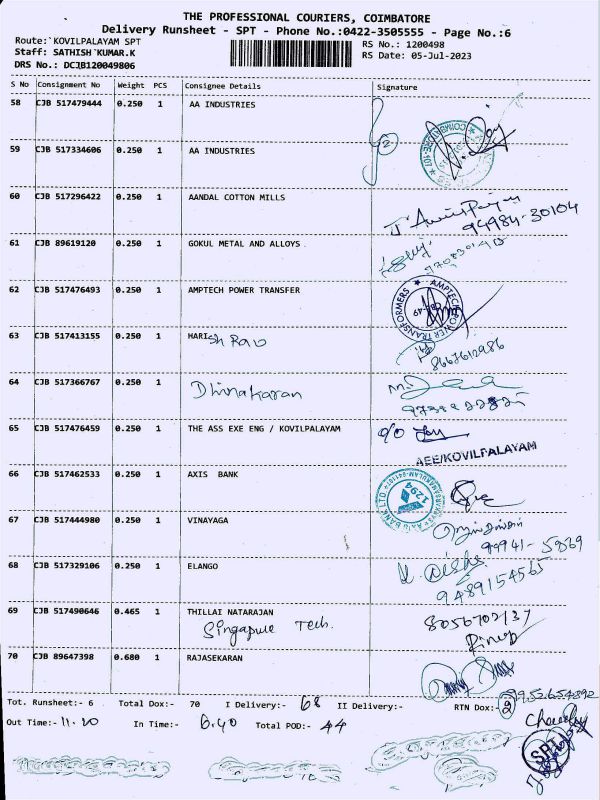 THE PROFESSIONAL COURIERS, COIMBATORE
Delivery Runsheet - SPT - Phone No.:0422-3505555 - Page No.:6
Route:`KOVILPALAYAM SPT RS No.: 1200498
Staff: SATHISH KUMAR.K RS Date: 05-Jul-2023
DRS No.: DCJB120049806
S No Consignment No Weight PCS Consignee Details Signature
58 CJB 517479444 0.250 1 AA INDUSTRIES
59 CJB 517334606 0.250 1 AA INDUSTRIES
60 CJB 517296422 0.250 1 AANDAL COTTON MILLS
94984-30104
61 CJB 89619120 0.250 1 GOKUL METAL AND ALLOYS
62 CJB 517476493 0.250 1 AMPTECH POWER TRANSFER
AMPTECH POWER TRANSFORMERS
63 CJB 517413155 0.250 1 HARISh Rao
8667612986
64 CJB 517366767 0.250 1 Dhinakaran
65 CJB 517476459 0.250 1 THE ASS EXE ENG / KOVILPALAYAM
AEE/KOVILPALAYAM
66 CJB 517462533 0.250 1 AXIS BANK
1294
67 CJB 517444980 0.250 1 VINAYAGA
99941-5869
68 CJB 517329106 0.250 1 ELANGO
9489154565
69 CJB 517490646 0.465 1 THILLAI NATARAJAN 8056702137
Singapure Tech.
70 CJB 89647398 0.680 1 RAJASEKARAN
9952654892
Tot. Runsheet:- 6 Total Dox:- 70 I Delivery:- 68 II Delivery:- RTN Dox:- 2
Out Time:- 11.20 In Time:- 6.40 Total POD:- 44
SPT